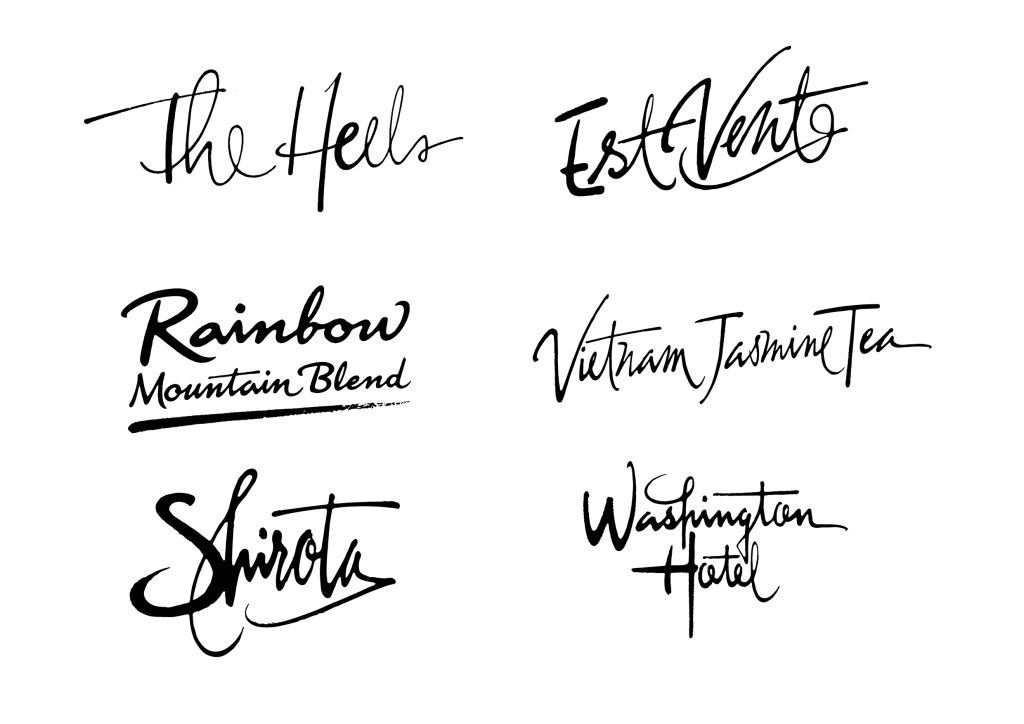 The Hells
Est Vento
Rainbow
Mountain Blend
Vietnam Jasmine Tea
Shirota
Washington
Hotel